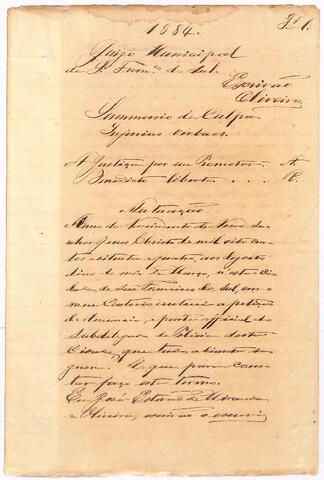 1884.
Juizo Municipal
de S. Franco do Sul.
Escrivão
Oliveira
Summario de Culpa.
Injurias verbaes.
A Justiça por seu Promotor A.
Benedicto liberto . . . . R.
Autuação
Anno do Nascimento de Nosso Se-
nhor Jesus Christo de mil oito cen-
tos e oitenta e quatro, aos
dias do mez de Março, n'esta Ci-
dade de São Francisco do Sul, em
meu Cartorio autuei a petição
de denuncia, e parte official do
Subdelegado de Policia desta
Cidade, que tudo adiante se-
guem. E que para cons-
tar faço este termo.
Eu José Estevão de Miranda
e Oliveira, escrivão o escrevi